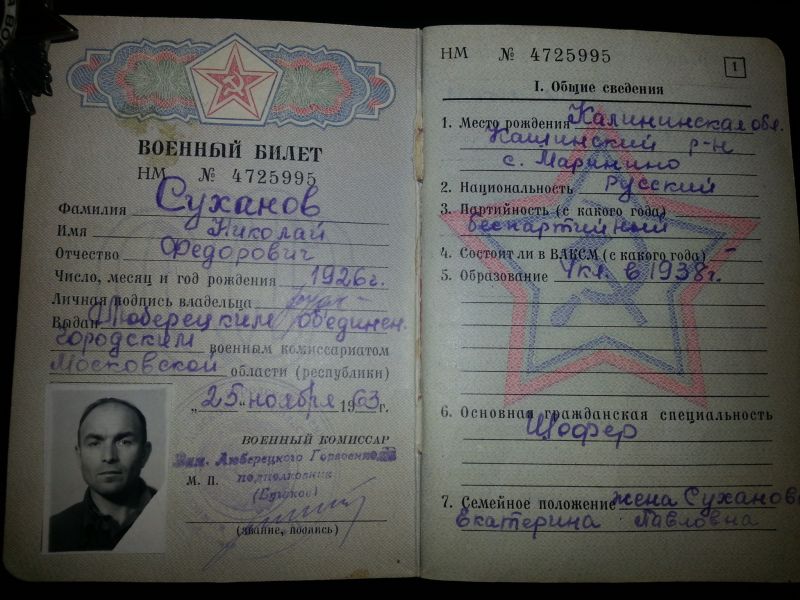 ВОЕННЫЙ БИЛЕТ
НМ № 4725995
Фамилия Суханов
Имя Николай
Отчество Федорович
Число, месяц и год рождения 1926г.
Личная подпись владельца
Выдан Люберецким объединен.
городским военным комиссариатом
Московской области (республики)
„25“ ноября 1963 г.
ВОЕННЫЙ КОМИССАР
Люберецкого
М. П. подполковник
(звание, подпись)
НМ № 4725995
1
I. Общие сведения
1. Место рождения Калининская обл.
Кашинский р-н
с. Маринино
2. Национальность Русский
3. Партийность (с какого года)
беспартийный
4. Состоит ли в ВЛКСМ (с какого года) –
5. Образование 4кл. в 1938г.
6. Основная гражданская специальность
Шофер
7. Семейное положение жена Суханова
Екатерина Павловна